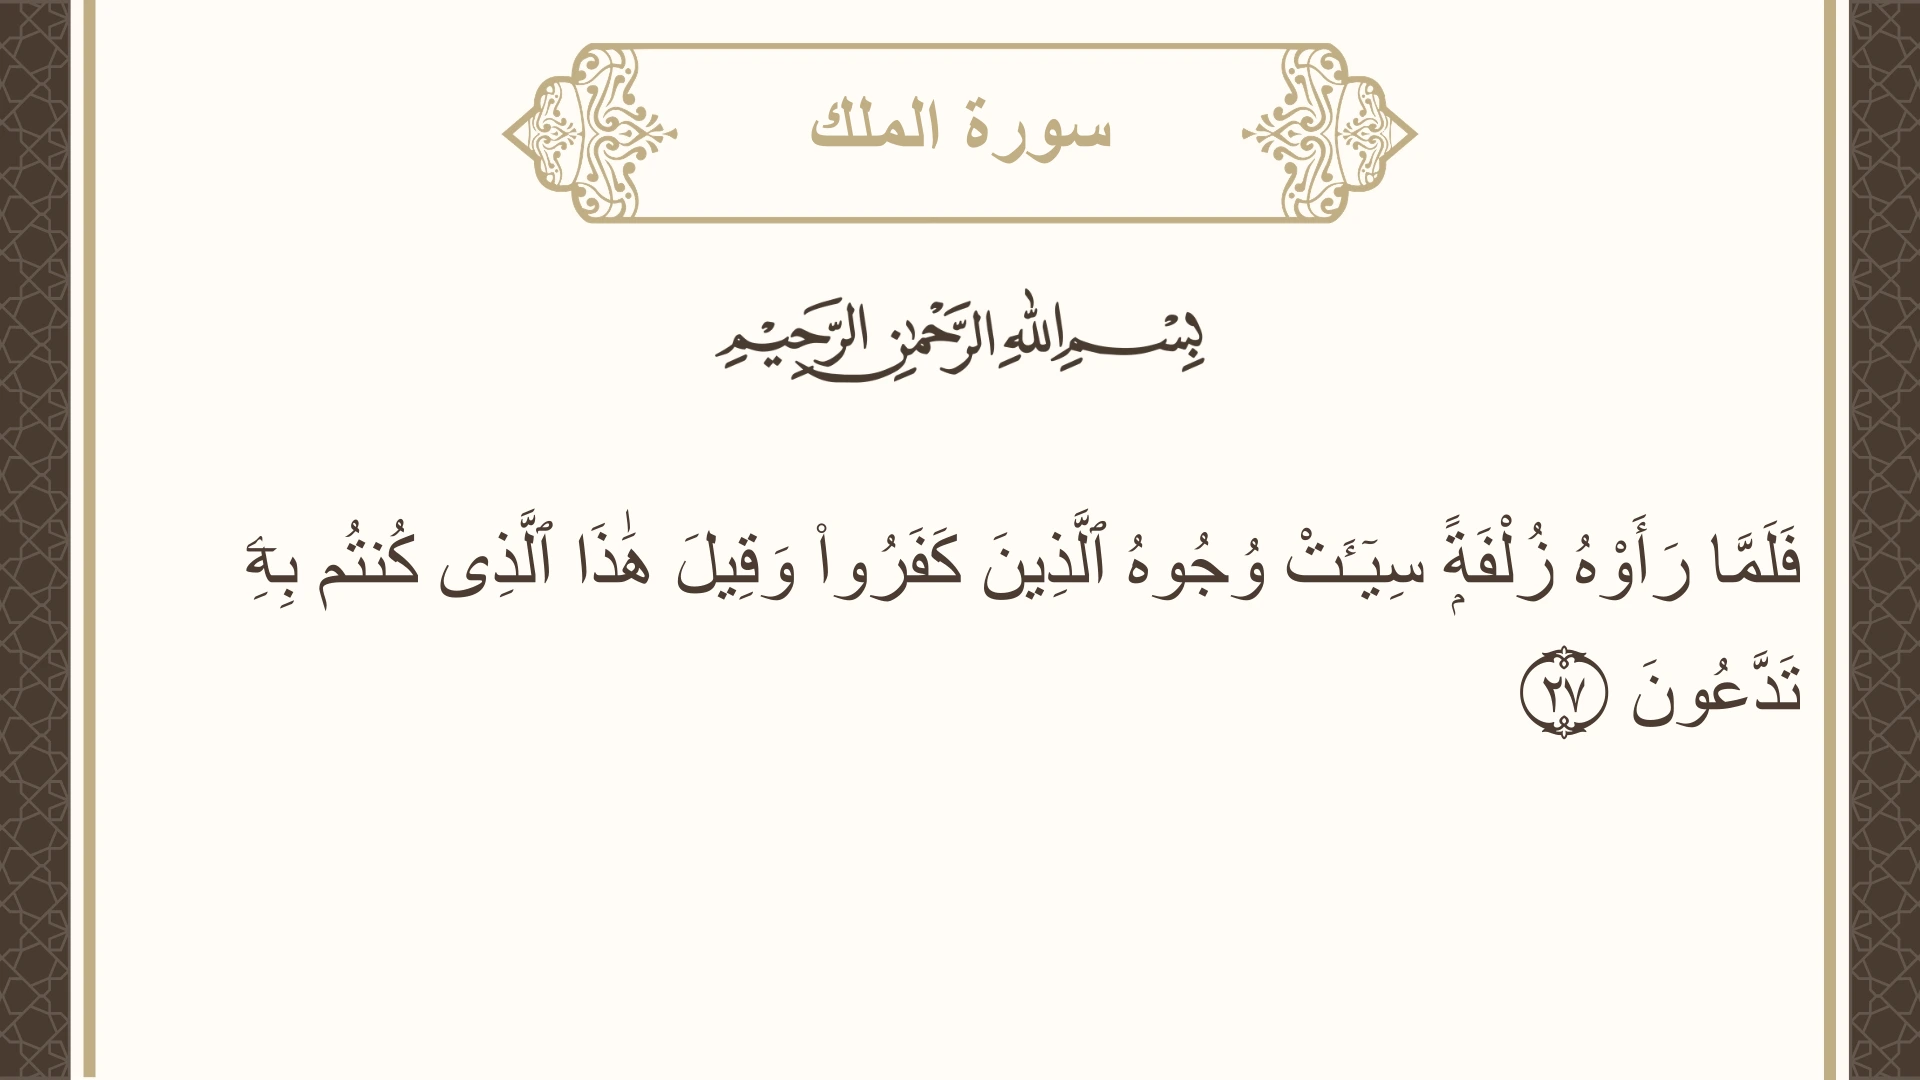 سورة الملك
بِسْمِ اللهِ الرَّحْمٰنِ الرَّحِيْمِ
فَلَمَّا رَأَوْهُ زُلْفَةًۭ سِيٓـَٔتْ وُجُوهُ ٱلَّذِينَ كَفَرُوا۟ وَقِيلَ هَٰذَا ٱلَّذِى كُنتُم بِهِۦٓ
تَدَّعُونَ ٢٧